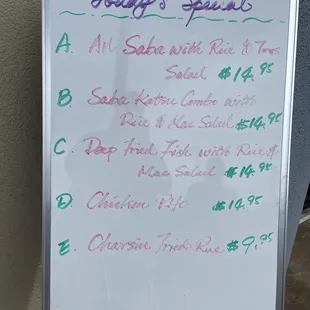 Today's Special
A. Ali Saba with Rice & Toss
Salad $14.95
B. Saba Katsu Combo with
Rice & Mac Salad $14.95
C. Deep Fried Fish with Rice &
Mac Salad $14.95
D. Chicken $14.95
E. Charsiu Fried Rice $9.95